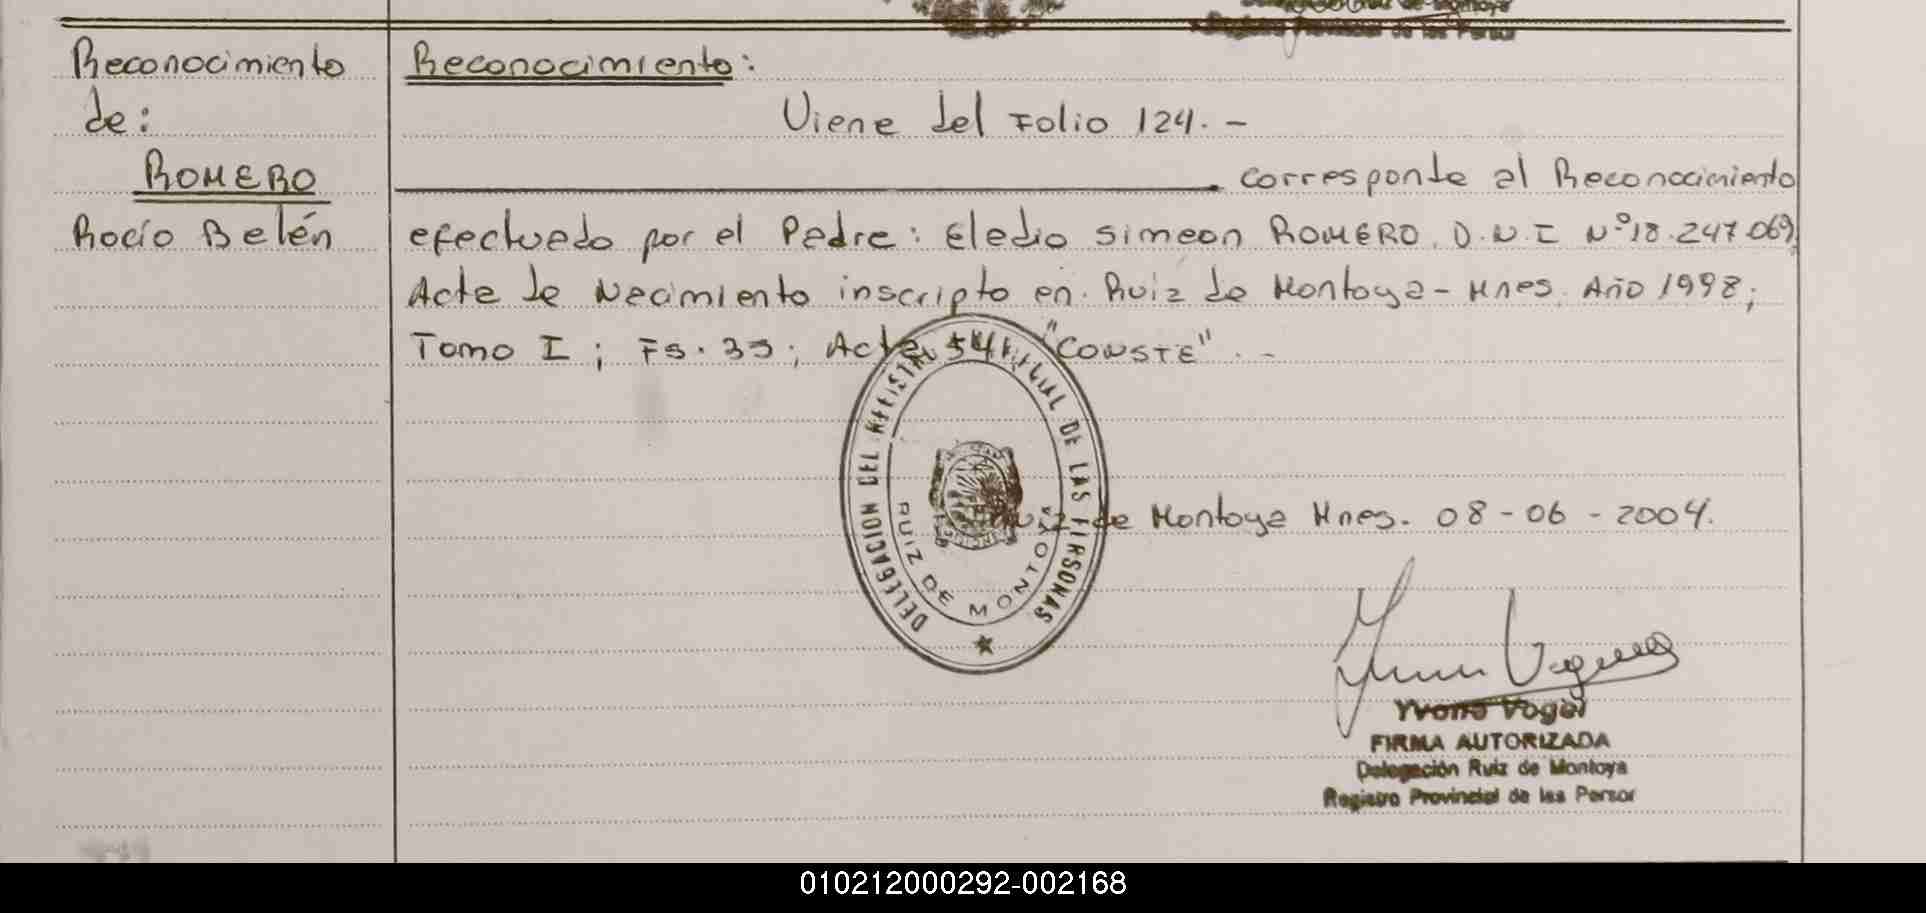 Reconocimiento
de:
ROMERO
Rocío Belén
Reconocimiento:
Viene del Folio 124.-
corresponde al Reconocimiento
efectuado por el Padre: Eledio Simeon ROMERO. D.N.I Nº18.247.069,
Acta de Nacimiento inscripto en. Ruiz de Montoya - Mnes. Año 1998;
Tomo I; Fs. 33; Acta 541, "CONSTE".-
DELEGACION DEL REGISTRO DE LAS PERSONAS
RUIZ DE MONTOYA
Ruiz de Montoya Mnes. 08-06-2004.
Yvone Vogel
FIRMA AUTORIZADA
Delegación Ruiz de Montoya
Registro Provincial de las Persor
010212000292-002168